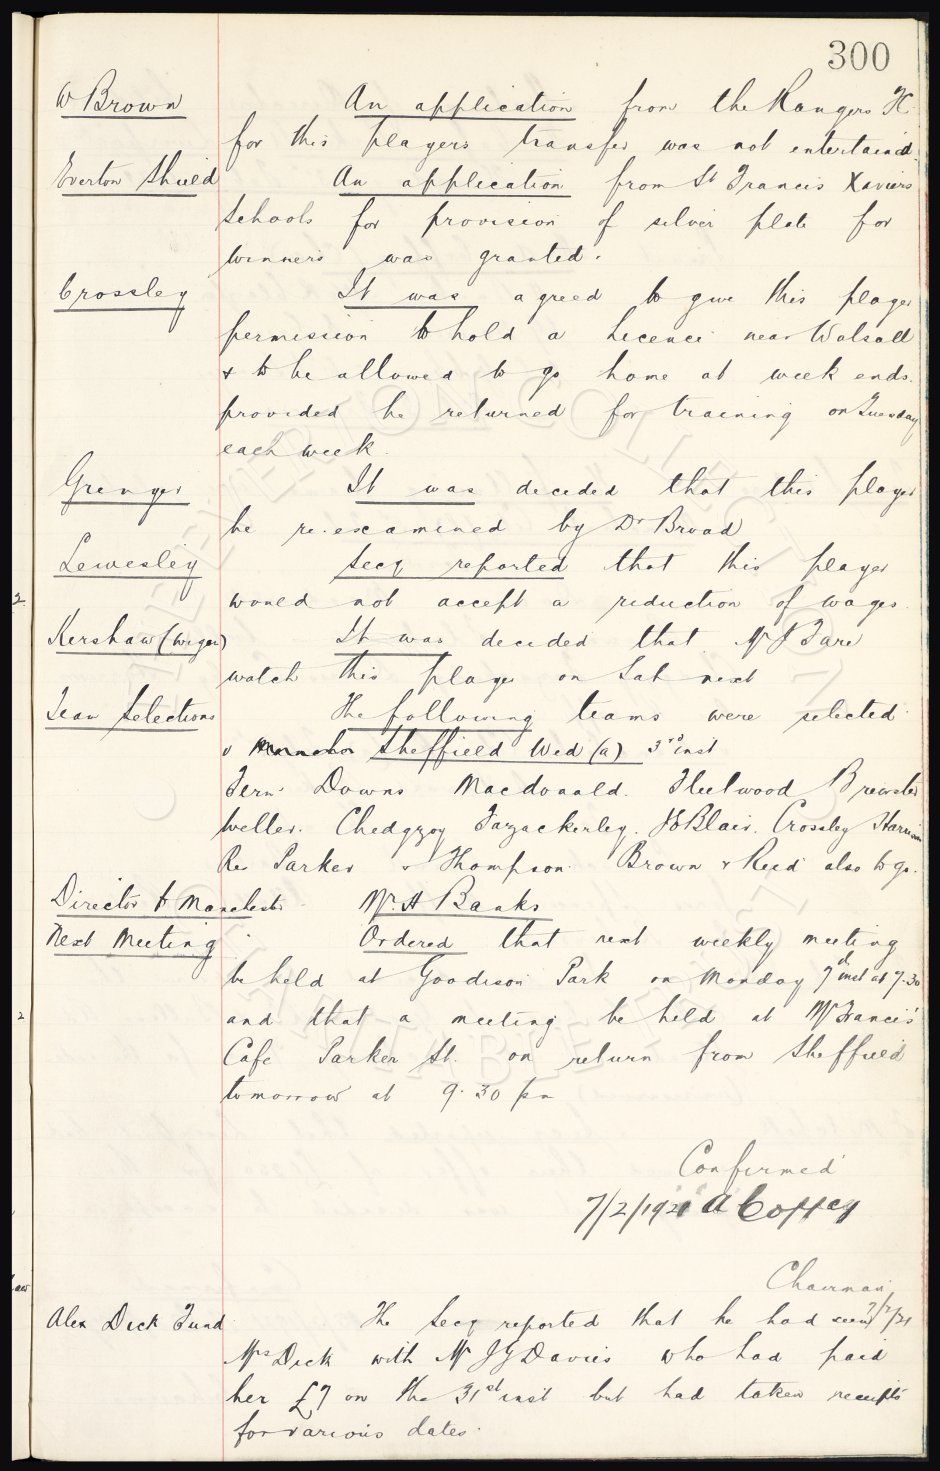 300
W Brown An application from the Rangers FC
for this players transfer was not entertained.
Everton Shield An application from St Francis Xaviers
Schools for provision of silver plate for
winners was granted.
Crossley It was agreed to give this player
permission to hold a licence near Walsall
& to be allowed to go home at week ends.
provided he returned for training on Tuesday
each week.
Grenyer It was decided that this player
be re-examined by Dr Broad
Lewesley Secy reported that this player
would not accept a reduction of wages.
Kershaw (Wigan) It was decided that Mr J Fare
watch this player on Sat next
Team Selections The following teams were selected
v Sheffield Wed (a) 3rd inst
Fern. Downs Macdonald. Fleetwood Brewster
Weller. Chedgzoy Fazackerley. J Blair. Crossley Harrison
Res Parker & Thompson. Brown & Reid also to go.
Director to Manchester Mr. A Banks
Next Meeting Ordered that next weekly meeting
be held at Goodison Park on Monday 7th inst at 7.30
and that a meeting be held at Mr Francis'
Cafe Parker St. on return from Sheffield
tomorrow at 9.30 pm
Confirmed
7/2/1921 A Coffey
Chairman
7/2/21
Alex Dick Fund The Secy reported that he had seen
Mrs Dick with Mr J G Davies who had paid
her £7 on the 31st inst but had taken receipts
for various dates.
2
2